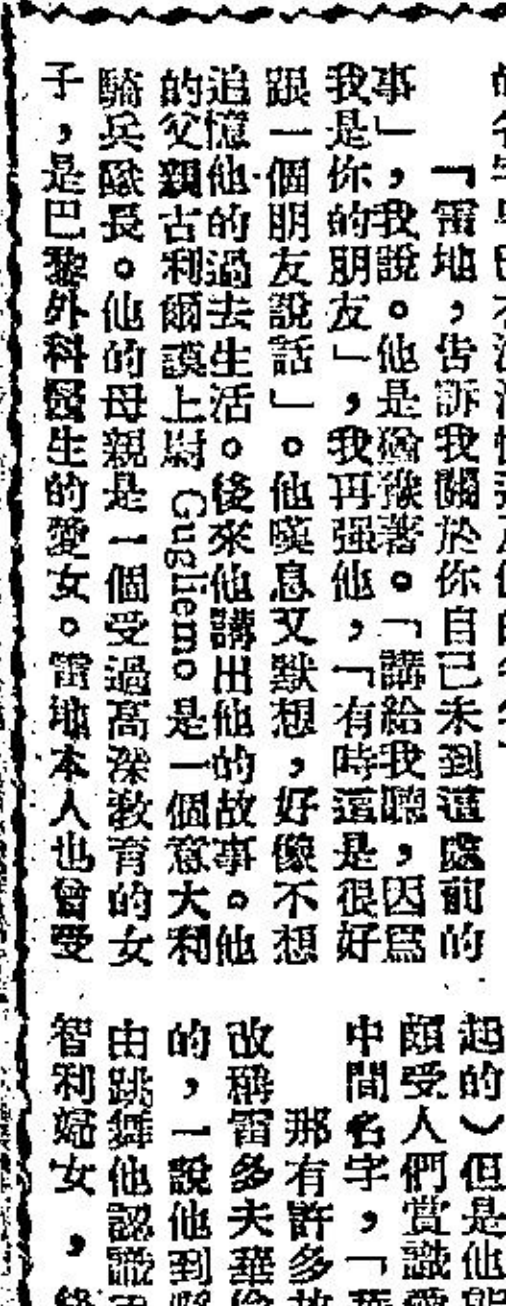 「雷地，告訴我關於你自已未到這處前的
事」，我說。他是躊躇著。「講給我聽，因爲
我是你的朋友」，我再强他，「有時這是很好
跟一個朋友說話」。他嘆息又默想，好像不想
追憶他的過去生活。後來他講出他的故事。他
的父親古利爾謨上尉 Gugliemo 是一個意大利
騎兵隊長。他的母親是一個受過高深教育的女
子，是巴黎外科醫生的愛女。雷地本人也曾受
起的）但是他
頗受人們賞識
中間名字，「
那有許多
改稱雷多夫華
的，一說他到
由跳舞他認識
智利婦女，